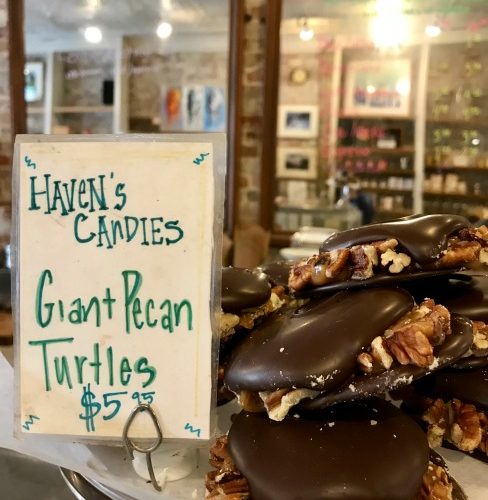 HAVEN'S
CANDIES
Giant Pecan
Turtles
$5.95